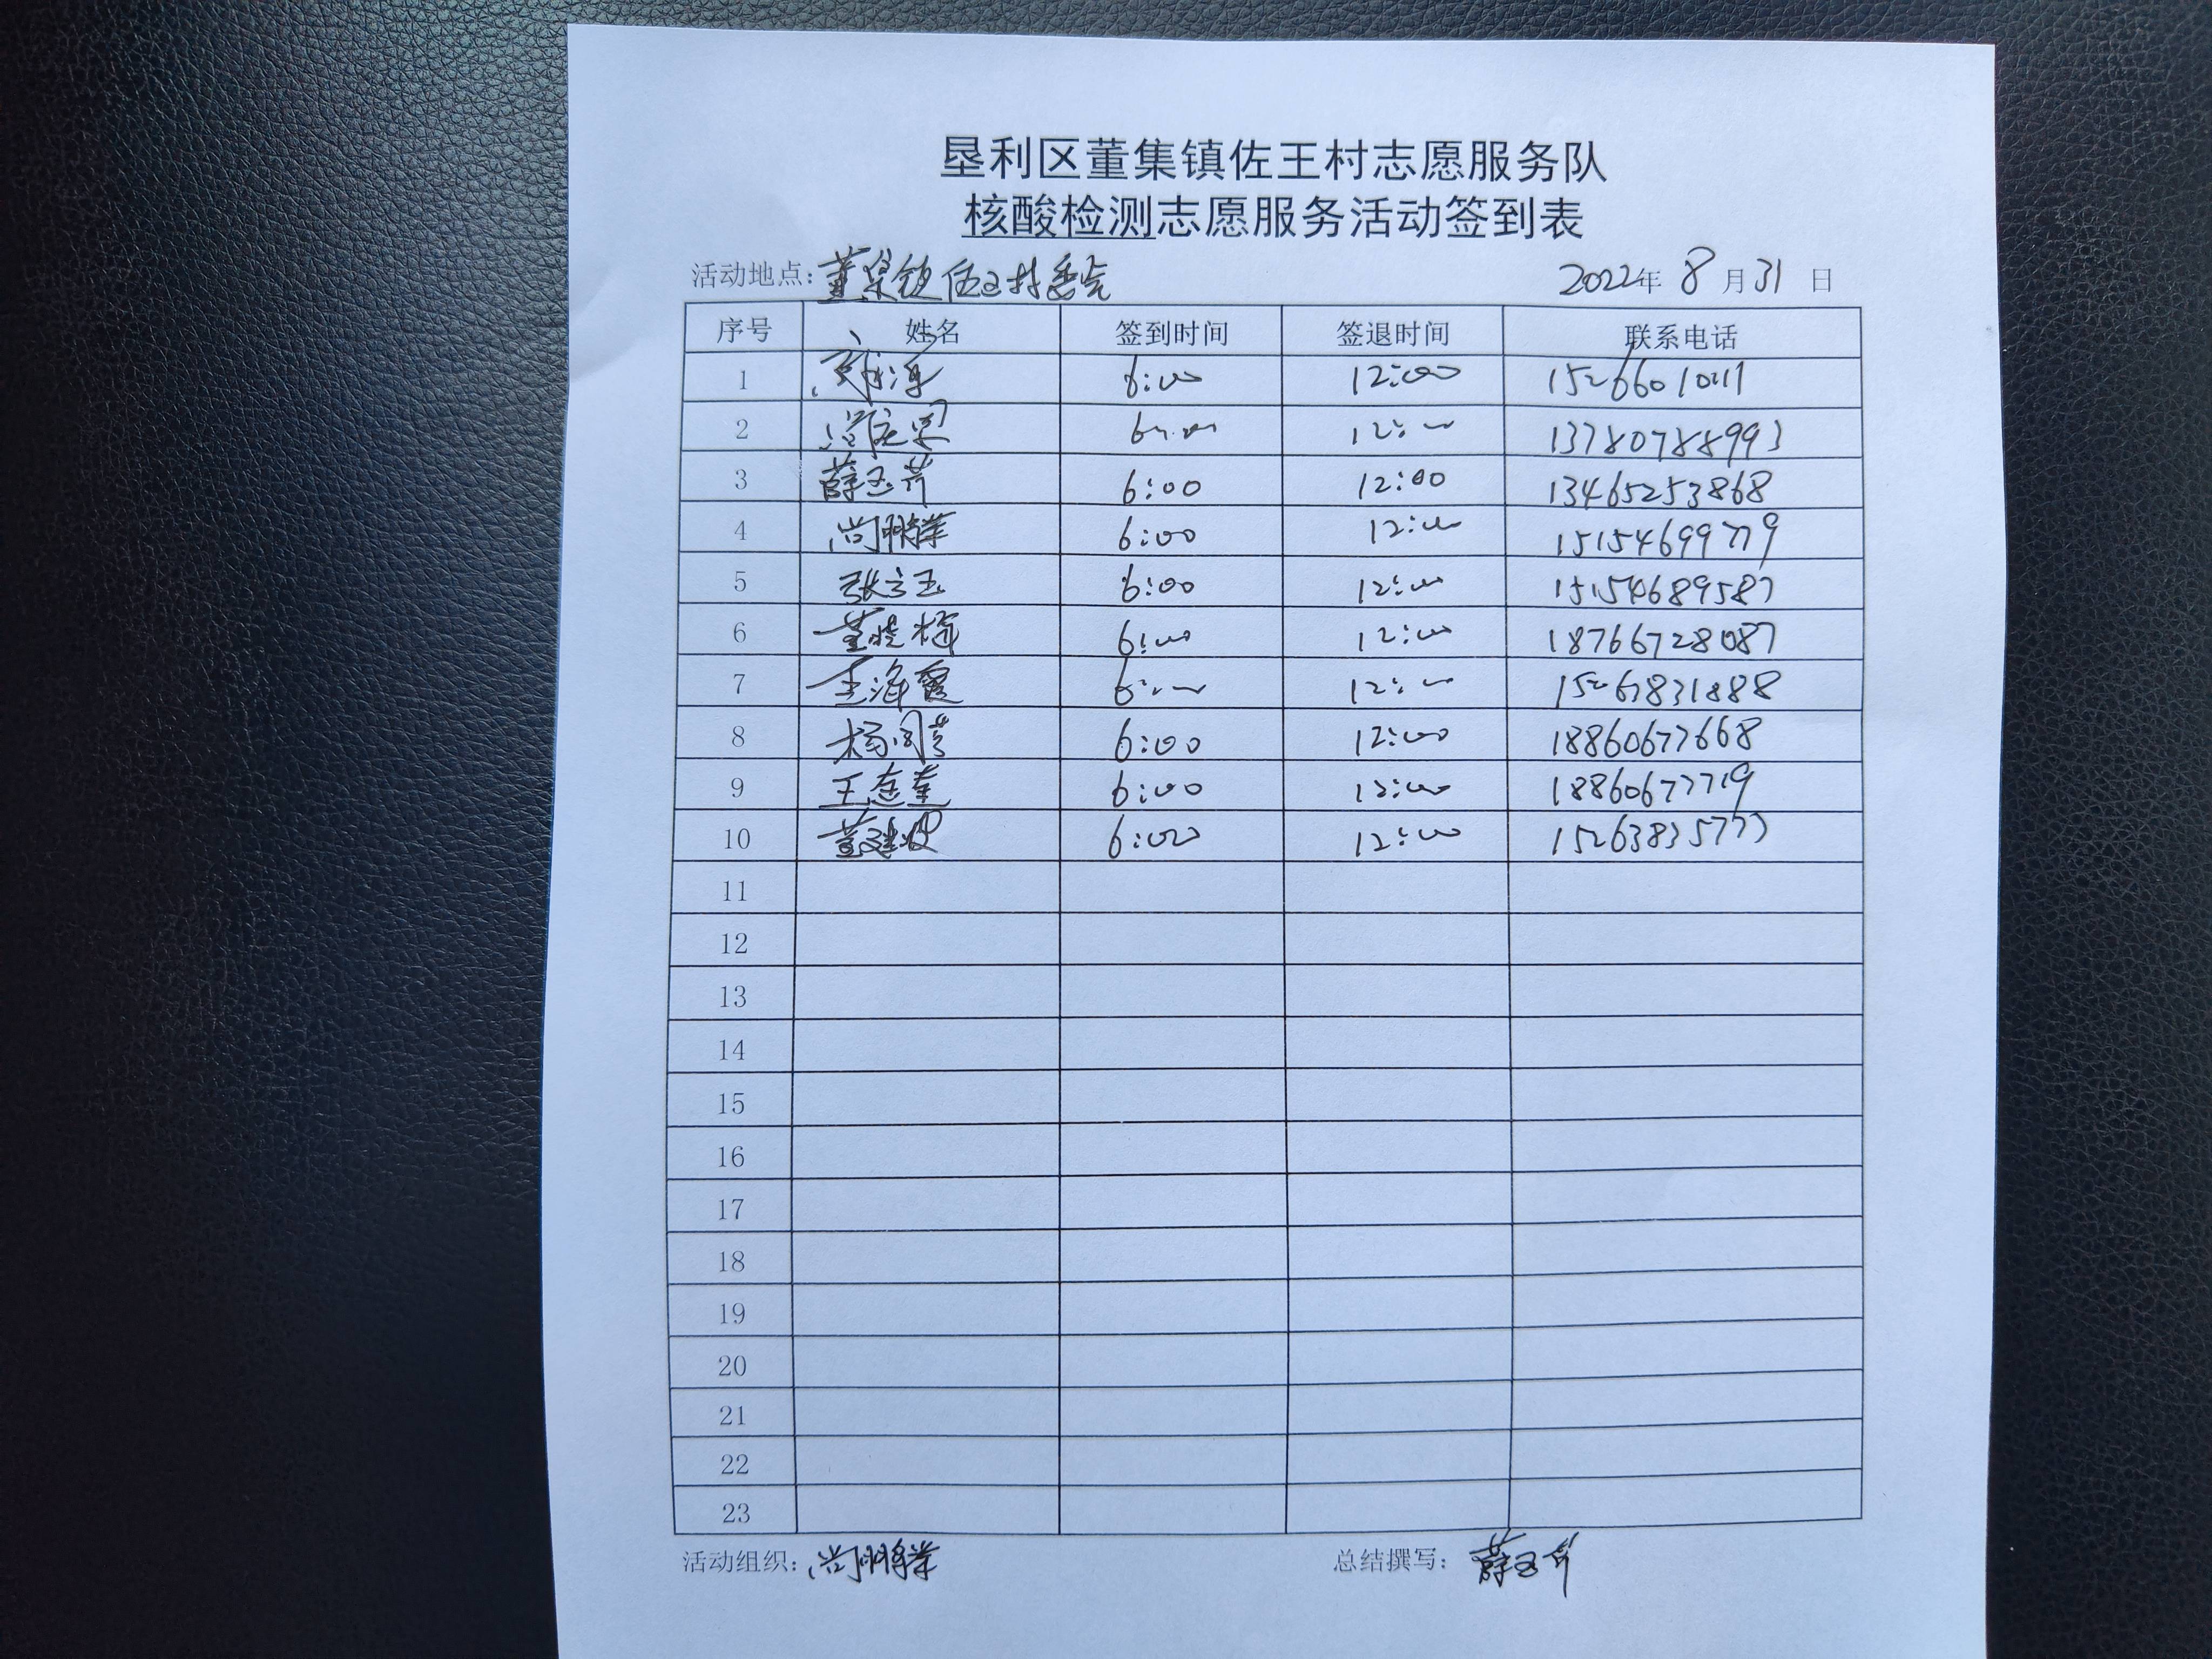 垦利区董集镇佐王村志愿服务队
核酸检测志愿服务活动签到表
活动地点：董集镇佐王村委会 2022年 8月31日
序号 姓名 签到时间 签退时间 联系电话
1 6:00 12:00
2 6:00 12:00 13780788993
3 薛玉芹 6:00 12:00 13465253868
4 尚鹏举 6:00 12:00 15154699779
5 张立玉 6:00 12:00 15154689587
6 董晓梅 6:00 12:00 18766728087
7 王海霞 6:00 12:00
8 杨闪芳 6:00 12:00 18860677668
9 王连奎 6:00 12:00 18860677719
10 董建波 6:00 12:00 15263835777
11
12
13
14
15
16
17
18
19
20
21
22
23
活动组织：尚鹏举 总结撰写：薛玉芹